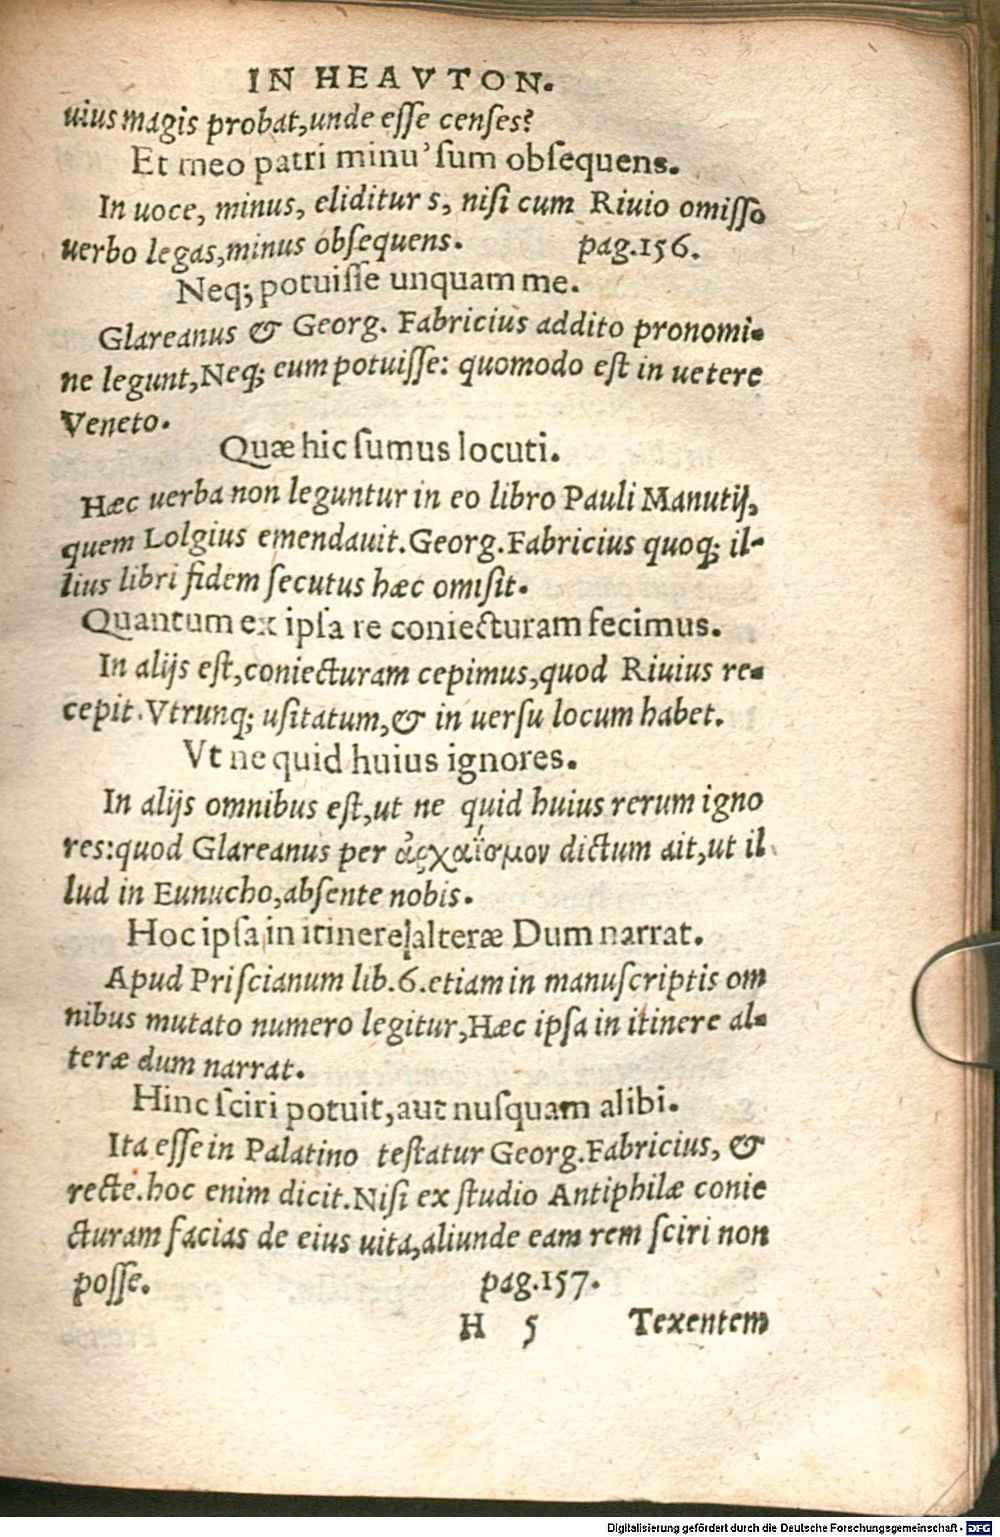 IN HEAVTON.
uius magis probat, unde esse censes?
Et meo patri minu' sum obsequens.
In uoce, minus, eliditur s, nisi cum Riuio omisso
uerbo legas, minus obsequens. pag.156.
Neq; potuisse unquam me.
Glareanus & Georg. Fabricius addito pronomi-
ne legunt, Neq; eum potuisse: quomodo est in uetere
Veneto.
Quæ hic sumus locuti.
Hæc uerba non leguntur in eo libro Pauli Manutij,
quem Lolgius emendauit. Georg. Fabricius quoq; il-
lius libri fidem secutus hæc omisit.
Quantum ex ipsa re coniecturam fecimus.
In alijs est, coniecturam cepimus, quod Riuius re-
cepit. Vtrunq; usitatum, & in uersu locum habet.
Vt ne quid huius ignores.
In alijs omnibus est, ut ne quid huius rerum igno
res: quod Glareanus per ἀρχαϊσμον dictum ait, ut il
lud in Eunucho, absente nobis.
Hoc ipsa in itinere alteræ Dum narrat.
Apud Priscianum lib.6. etiam in manuscriptis om
nibus mutato numero legitur, Hæc ipsa in itinere al-
teræ dum narrat.
Hinc sciri potuit, aut nusquam alibi.
Ita esse in Palatino testatur Georg. Fabricius, &
recte. hoc enim dicit. Nisi ex studio Antiphilæ conie
cturam facias de eius uita, aliunde eam rem sciri non
posse. pag.157.
H 5 Texentem
Digitalisierung gefördert durch die Deutsche Forschungsgemeinschaft - DFG